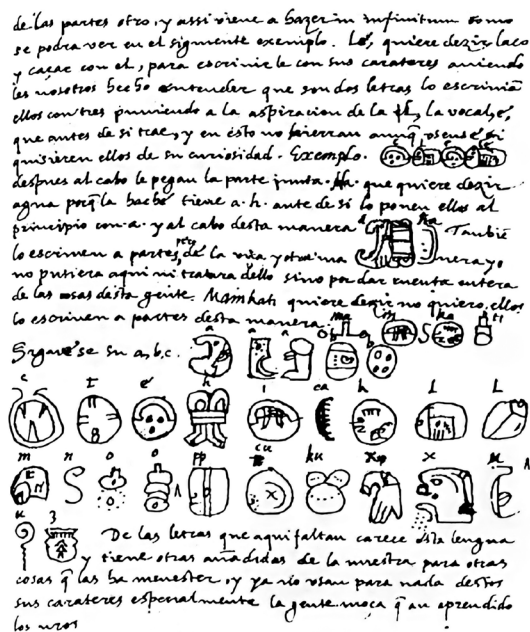 de las partes otro, y assi viene a hazer in infinitum como
se podra ver en el siguiente exemplo. Lé, quiere dezir laço
y caçar con el, para escrivirle con sus carateres aviendo
les nosotros hecho entender que son dos letras lo escrivian
ellos con tres puniendo a la aspiracion de la l, la vocal é,
que antes de si trae, y en esto no hierran aunq̃ osense, si
quisieren ellos de su curiosidad. Exemplo.
despues al cabo le pegan la parte junta. Ha. que quiere dezir
agua porq̃ la haché tiene a. h. ante de si lo ponen ellos al
principio con a. y al cabo desta manera Tambiẽ
lo escriven a partes de la una y otra ma nera, yo
no pusiera aqui ni tratara dello sino por dar cuenta entera
de las cosas desta gente. Mainkati quiere dezir no quiero, ellos
lo escriven a partes desta manera
ma i n ka ti
Siguese su a, b, c.
a a a b b
c t é h i ca k l l
m n o o pp cu ku x x u
u z
De las letras que aqui faltan carece esta lengua
y tiene otras añadidas de la nuestra para otras
cosas q̃ las ha menester, y ya no usan para nada destos
sus carateres especialmente la gente moça q̃ an aprendido
los nros